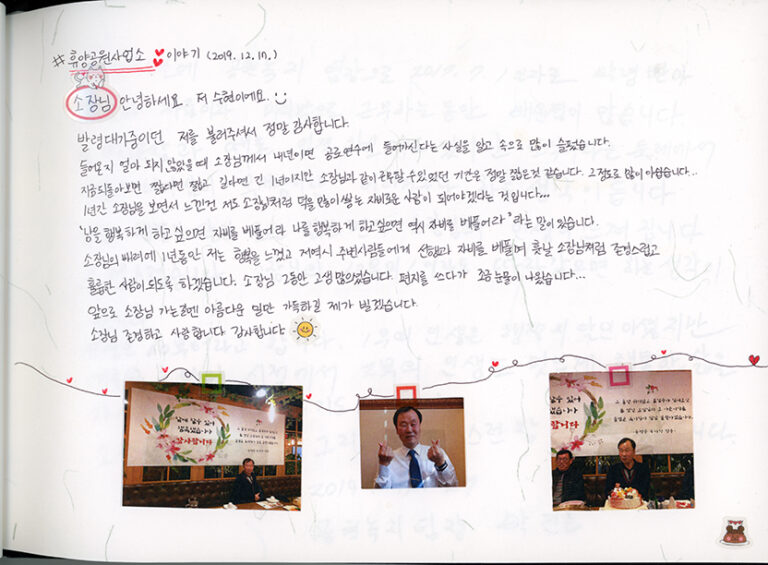 #휴양공원사업소 이야기 (2019. 12. 17.)
소장님 안녕하세요. 저 수현이에요.
발령대기중이던 저를 불러주셔서 정말 감사합니다.
들어온지 얼마 되지 않았을 때 소장님께서 내년이면 공로연수에 들어가신다는 사실을 알고 속으로 많이 슬펐습니다.
지금 되돌아보면 짧다면 짧고 길다면 긴 1년이지만 소장님과 같이 근무할 수 있었던 기간은 정말 짧은것 같습니다. 그정도로 많이 아쉽습니다...
1년간 소장님을 보면서 느낀건 저도 소장님처럼 덕을 많이 쌓는 자비로운 사람이 되어야겠다는 것입니다...
"남을 행복하게 하고싶으면 자비를 베풀어라 나를 행복하게 하고싶으면 역시 자비를 베풀어라" 라는 말이 있습니다.
소장님의 배려에 1년동안 저는 행복을 느꼈고 저역시 주변사람들에게 선행과 자비를 베풀며 훗날 소장님처럼 존경스럽고
훌륭한 사람이 되도록 하겠습니다. 소장님 그동안 고생 많으셨습니다. 편지를 쓰다가 조금 눈물이 나왔습니다...
앞으로 소장님 가는길엔 아름다운 일만 가득하길 제가 빌겠습니다.
소장님 존경하고 사랑합니다 감사합니다
감사합니다